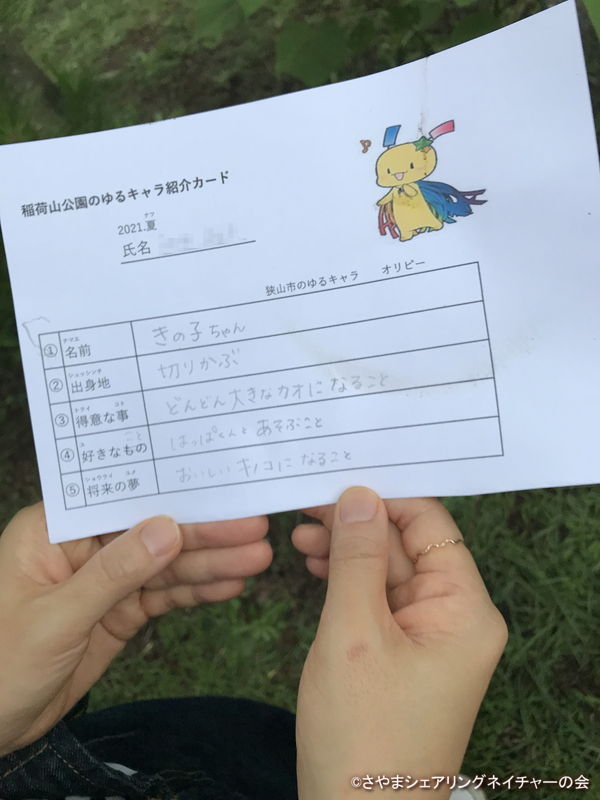 稲荷山公園のゆるキャラ紹介カード
ナツ
2021.夏
氏名
狭山市のゆるキャラ オリピー
ナマエ
① 名前 きの子ちゃん
シュッシンチ
② 出身地 切りかぶ
トクイ コト
③ 得意な事 どんどん大きなカオになること
ス こと
④ 好きなもの はっぱくんとあそぶこと
ショウライ ユメ
⑤ 将来の夢 おいしいキノコになること
©さやまシェアリングネイチャーの会